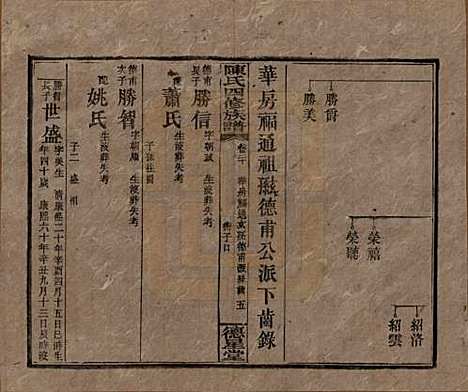 勝爵
勝美
榮禧
榮聰
紹濟
紹雲
華房福通祖孫德甫公派下齒錄
陳氏四修族譜
卷二十
五
德星堂
德甫長子
勝信
字朝誠
生沒葬失考
配
蕭氏
生沒葬失考
子
德甫次子
勝智
字朝順
生沒葬失考
配
姚氏
生沒葬失考
子二 盛 相
勝智長子
世盛
字英生
清康熙二十年辛酉四月十五日巳時生
年四十歲
康熙六十年辛丑九月十三日寅時沒